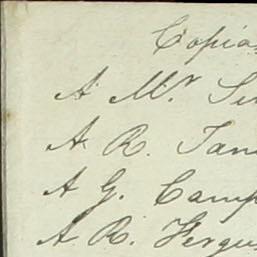 Copia
A Mr.
A R.
A G. Camp
A R. Fergu